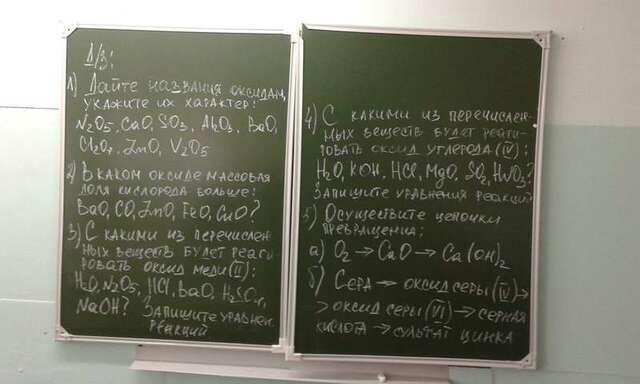 Д/З:
1) Дайте названия оксидам,
укажите их характер:
N2O5, CaO, SO3, Al2O3, BaO,
Cl2O7, ZnO, V2O5
2) В каком оксиде массовая
доля кислорода больше:
BaO, CO, ZnO, FeO, CuO?
3) С какими из перечислен-
ных веществ будет реаги-
ровать оксид меди (II):
H2O, N2O5, HCl, BaO, H2SO4,
NaOH? Запишите уравнен.
реакций
4) С какими из перечислен-
ных веществ будет реаги-
ровать оксид углерода (IV):
H2O, KOH, HCl, MgO, SO2, HNO3?
Запишите уравнения реакций
5) Осуществите цепочки
превращения:
а) O2 → CaO → Ca(OH)2
б) Сера → оксид серы (IV) →
→ оксид серы (VI) → серная
кислота → сульфат цинка